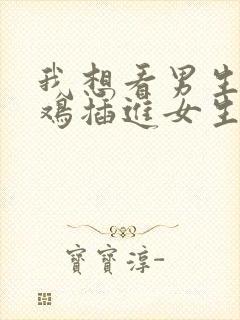 我想看男生
鸡插进女生
寶寶淳-